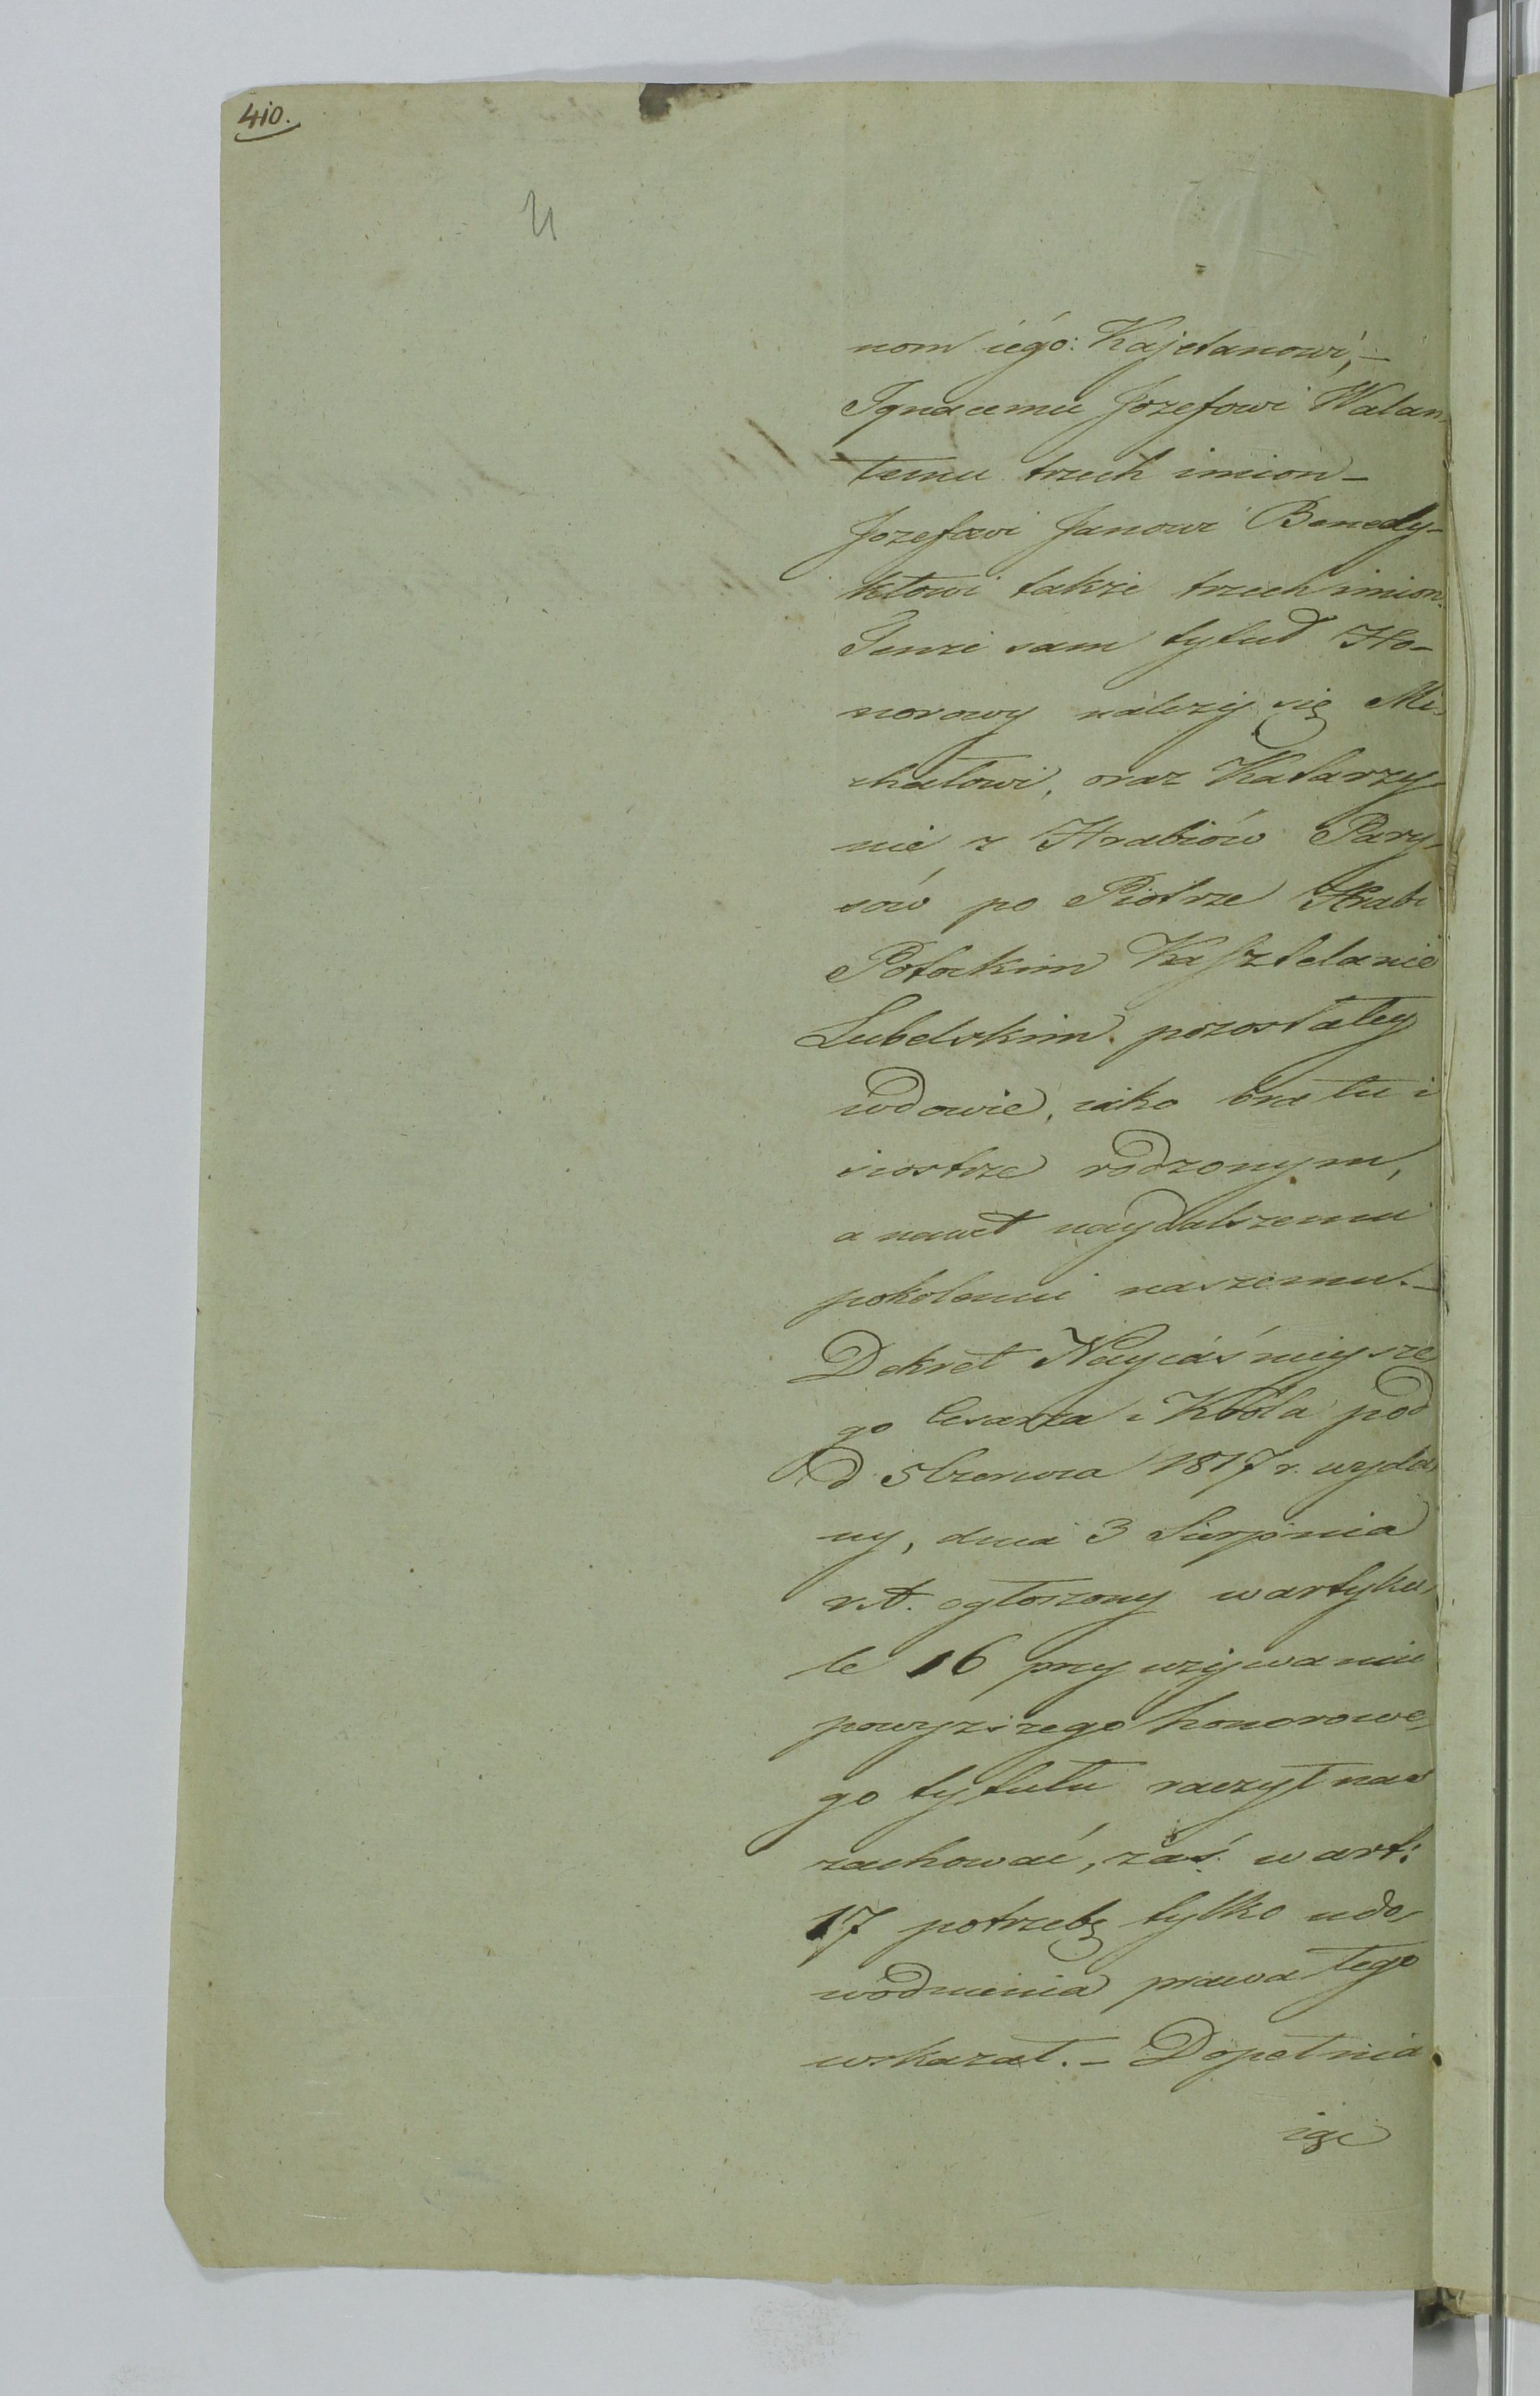 410.
nom iégo: Kajetanowi, –
Ignacemu Józefowi Walan-
temu trzech imion –
Jozefowi Janowi Benedy-
ktowi takze trzech imion.
Tenze sam tytuł Ho-
norowy należy się Mi-
chałowi, oraz Katarzy-
nie z Hrabiów Pary-
sów po Piotrze Hrabi
Potockim Kasztelanie
Lubelskim. pozostałey
wdowie, iako bratu i
siostrze rodzonym,
a nawet naydalszemu
pokoleniu naszemu. –
Dekret Nayiaśnieysze
go Cesarza i Króla pod
d. 5 Czerwca 1817 r. wyda-
ny, dnia 3 Sierpnia
r. t. ogłoszony w artyku-
le 16 przy używaniu
powyzszego honorowe-
go tytułu raczył nas
zachować, zaś w art:
17 potrzebę tylko udo-
wodnienia prawa tego
wskazał. – Dopełnia
iąc